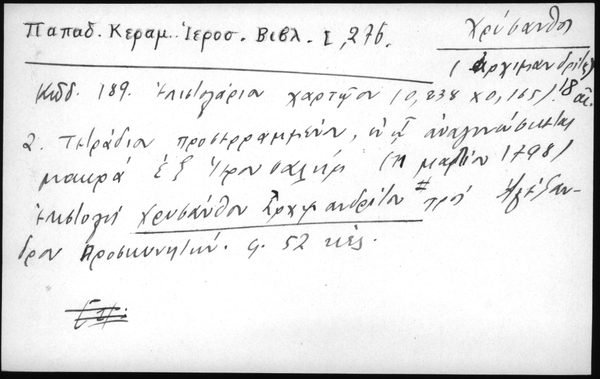 Παπαδ. Κεραμ. Ἱεροσ. Βιβλ. I, 276.
Χρύσανθος
(Ἀρχιμανδρίτης)
Κῶδ. 189. Ἐπιστολάριον χαρτῷον (0,238 x 0,165). 18 αἰ.
2. Τετράδιον προσερραμμένον, ἐν ᾧ ἀναγινώσκεται
μακρὰ ἐξ Ἱερουσαλὴμ (11 μαρτίου 1798)
ἐπιστολὴ Χρυσάνθου Ἀρχιμανδρίτου # πρὸς Ἀλέξαν-
δρον Προσκυνητήν. φ. 52 κἑξ.